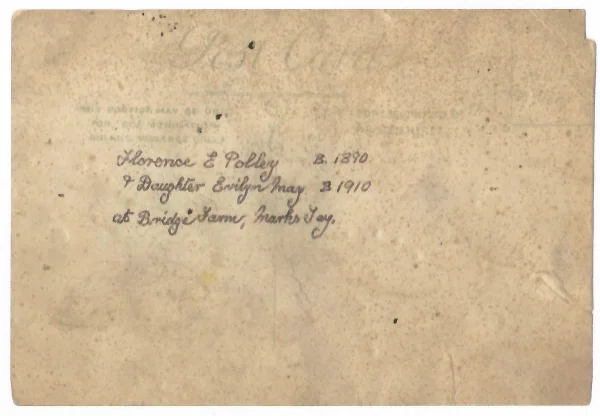 Post Card
Florence E Polley B. 1890
& Daughter Evilyn May B 1910
at Bridge Farm, Marks Tey.